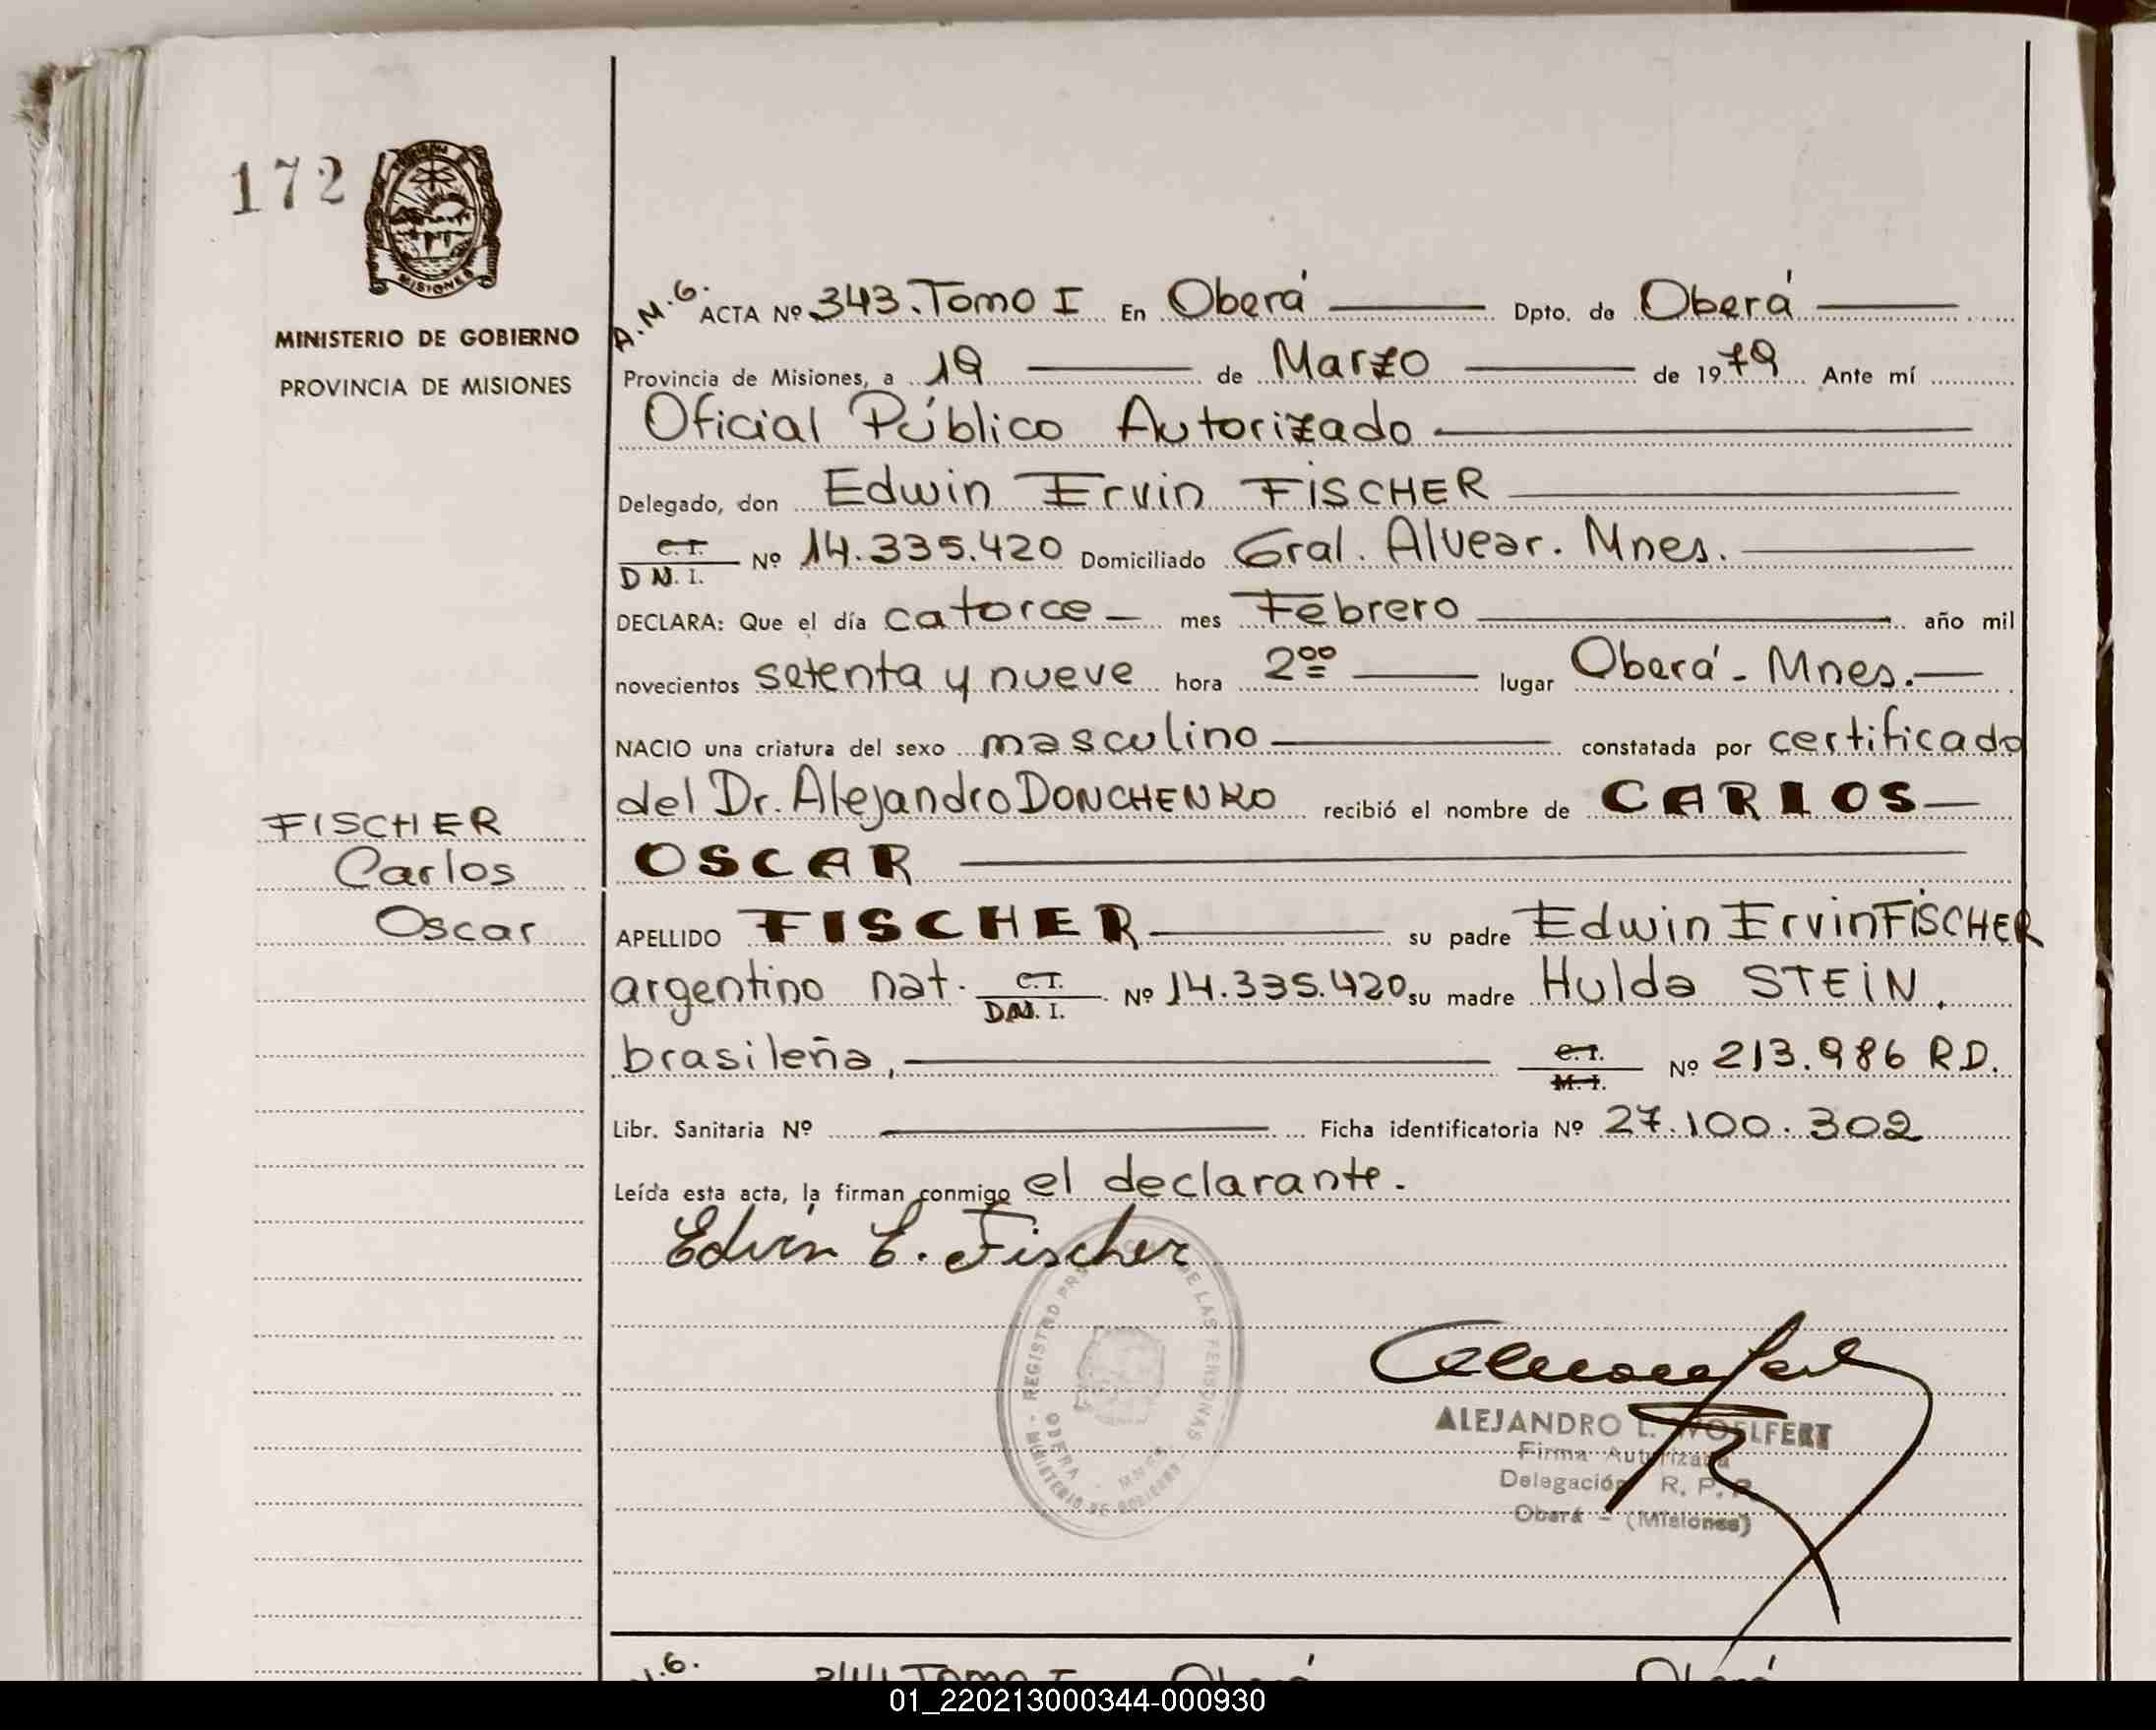 172
MISIONES
MINISTERIO DE GOBIERNO
PROVINCIA DE MISIONES
A.M.G. ACTA Nº 343. Tomo I En Oberá Dpto. de Oberá
Provincia de Misiones, a 19 de Marzo de 1979 Ante mí
Oficial Público Autorizado
Delegado, don Edwin Ervin FISCHER
C.I.
D N. I. Nº 14.335.420 Domiciliado Gral. Alvear. Mnes.
DECLARA: Que el día catorce mes Febrero año mil
novecientos setenta y nueve hora 2⁰⁰ lugar Oberá - Mnes.
NACIO una criatura del sexo masculino constatada por certificado
del Dr. Alejandro DONCHENKO recibió el nombre de CARLOS
OSCAR
FISCHER
Carlos
Oscar
APELLIDO FISCHER su padre Edwin Ervin FISCHER
argentino nat. C.I.
D.N. I. Nº 14.335.420 su madre Hulda STEIN.
brasileña, C.I.
M.I. Nº 213.986 R.D.
Libr. Sanitaria Nº Ficha identificatoria Nº 27.100.302
Leída esta acta, la firman conmigo el declarante.
Edvin E. Fischer
REGISTRO DE LAS PERSONAS
MINISTERIO DE GOBIERNO
OBERA
ALEJANDRO L. WOELFERT
Firma Autorizada
Delegación R. P. P.
Oberá - (Misiones)
344 Tomo I Oberá Oberá
01_220213000344-000930